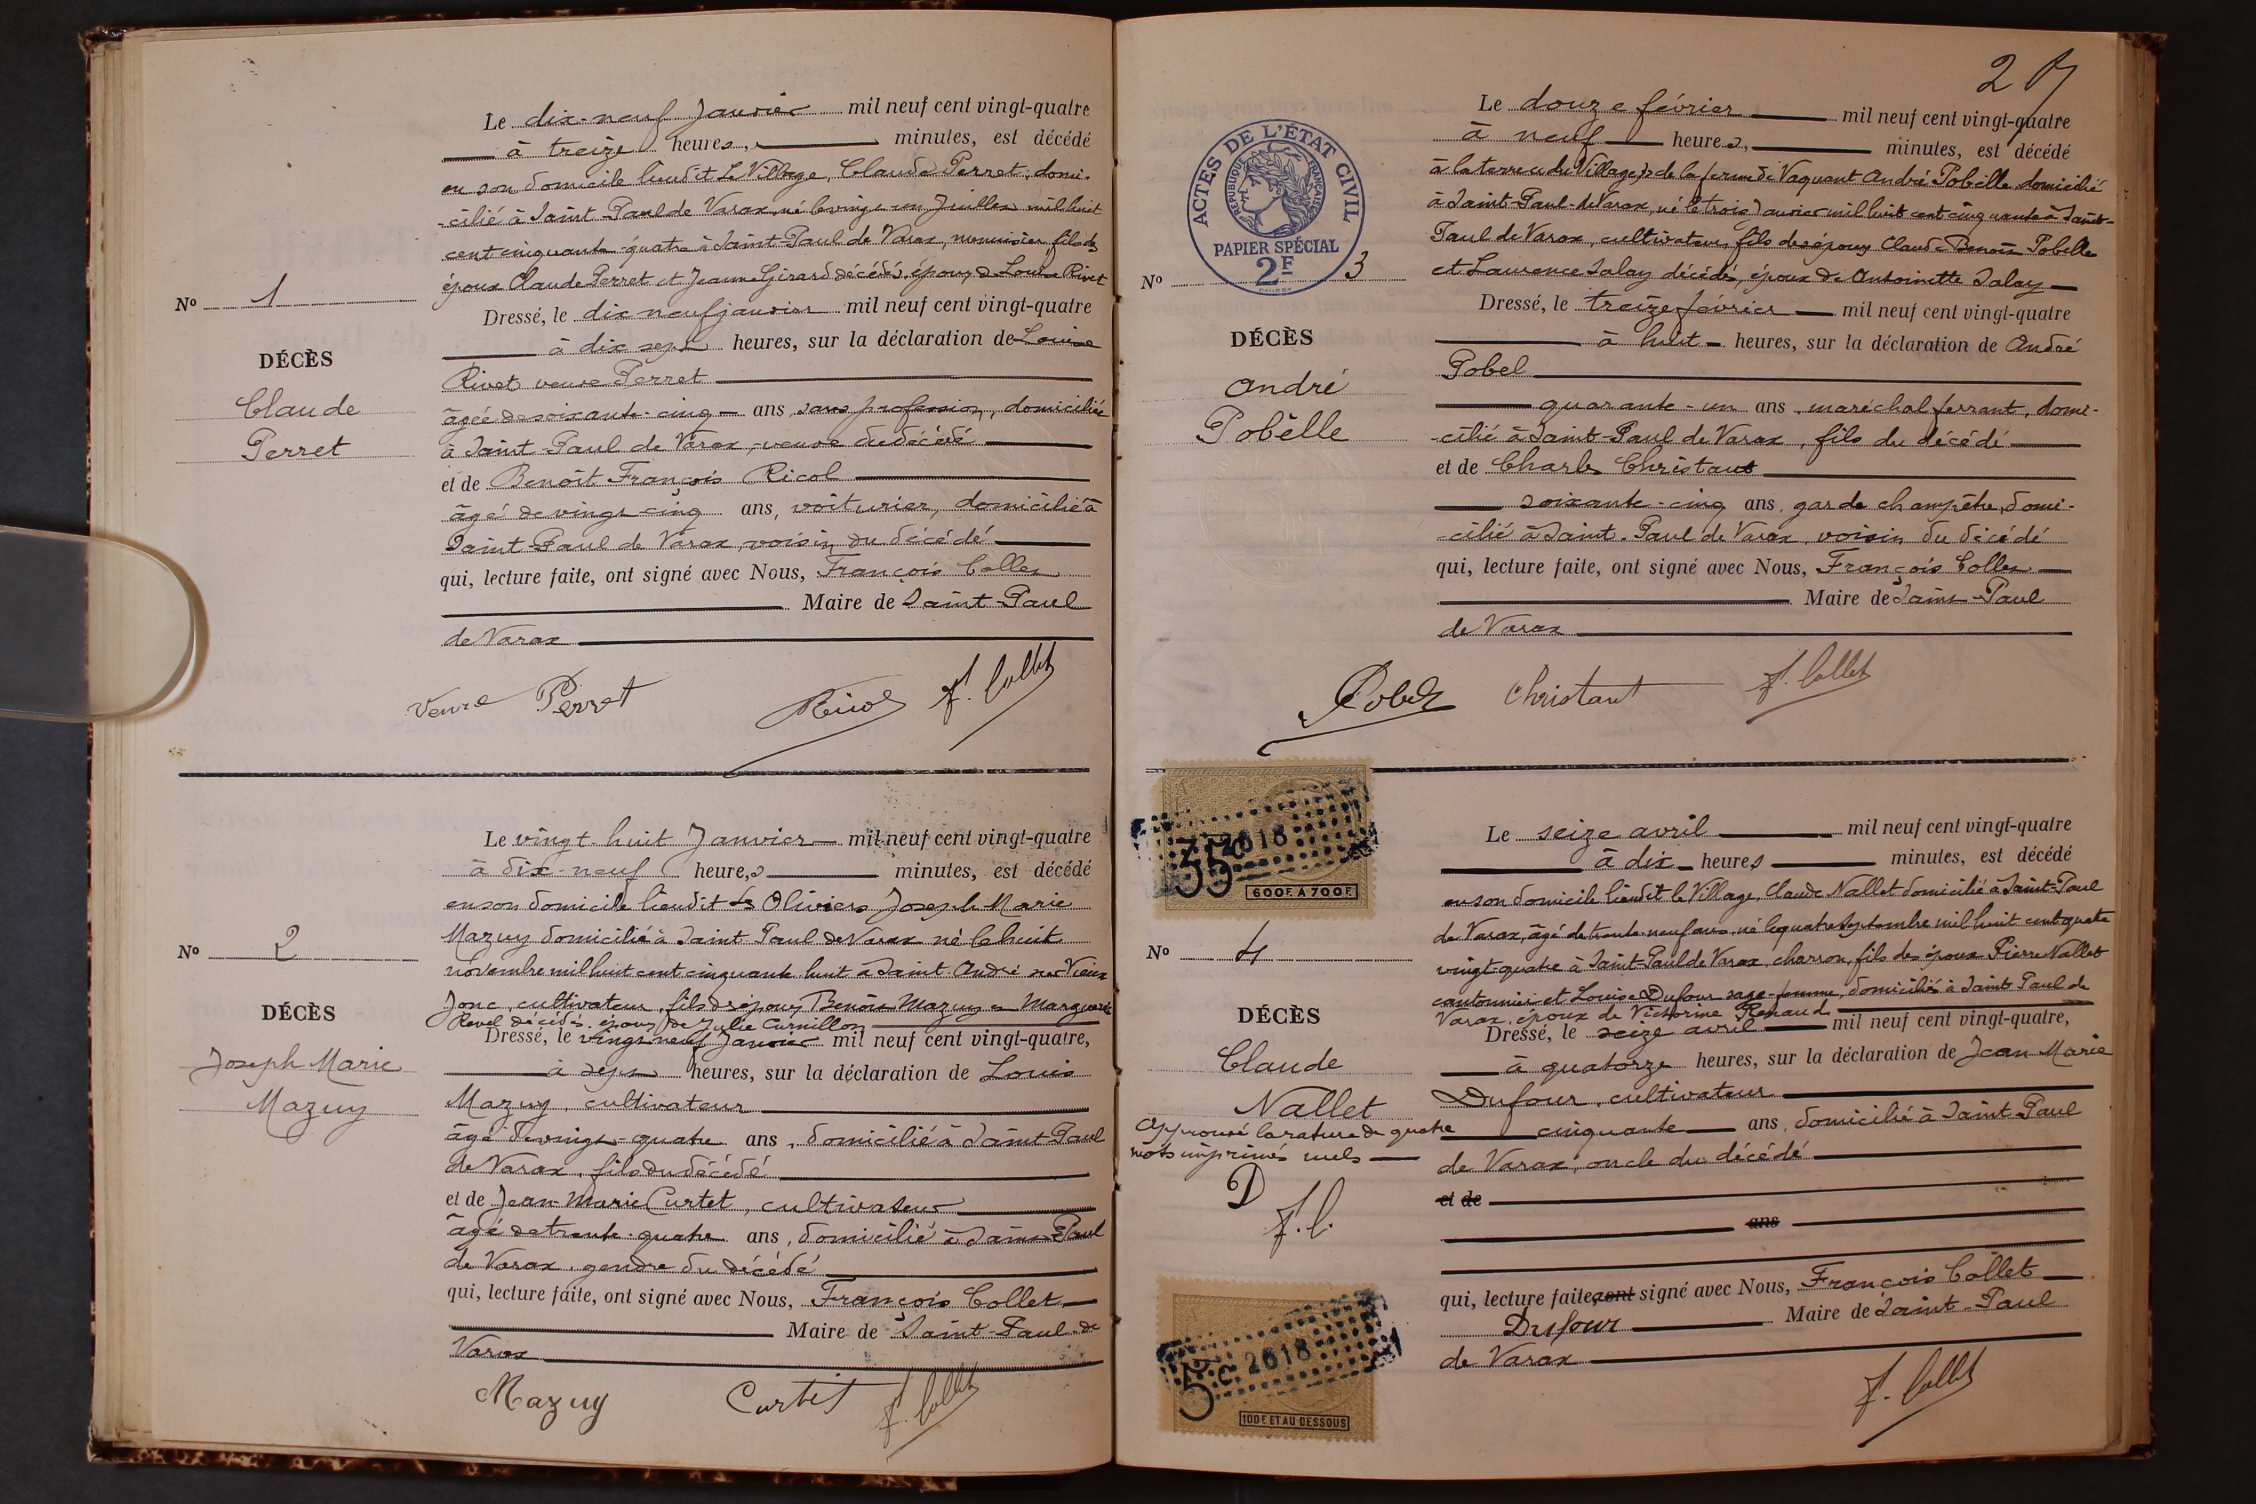 Le dix-neuf Janvier mil neuf cent vingt-quatre
à treize heures, minutes, est décédé
en son domicile lieudit Le Village, Claude Perret, domi-
-cilié à Saint-Paul de Varax, né le vingt un Juillet mil huit
cent cinquante-quatre à Saint-Paul de Varax, menuisier, fils des
époux Claude Perret et Jeanne Girard décédés, époux de Louise Rivet
No 1
Dressé, le dix neuf janvier mil neuf cent vingt-quatre
à dix sept heures, sur la déclaration de Louise
DÉCÈS
Claude
Perret
Rivet veuve Perret
âgée de soixante-cinq ans, sans profession, domiciliée
à Saint-Paul de Varax, veuve du décédé
et de Benoît François Ricol
âgé de vingt-cinq ans, voiturier, domicilié à
Saint-Paul de Varax, voisin du décédé
qui, lecture faite, ont signé avec Nous, François Collet
Maire de Saint-Paul
de Varax
Veuve Perret Ricol F. Collet
Le vingt-huit Janvier mil neuf cent vingt-quatre
à dix-neuf heures minutes, est décédé
en son domicile lieudit Les Oliviers Joseph-Marie
Mazuy domicilié à Saint Paul de Varax né le huit
novembre mil huit cent cinquante-huit à Saint-André sur Vieux
Jonc, cultivateur, fils des époux Benoît Mazuy et Marguerite
Revel décédés, époux de Julie Curnillon
No 2
Dressé, le vingt neuf Janvier mil neuf cent vingt-quatre,
à sept heures, sur la déclaration de Louis
DÉCÈS
Joseph Marie
Mazuy
Mazuy, cultivateur
âgé de vingt-quatre ans, domicilié à Saint Paul
de Varax, fils du décédé
et de Jean-Marie Curtet, cultivateur
âgé de trente-quatre ans, domicilié à Saint-Paul
de Varax, gendre du décédé
qui, lecture faite, ont signé avec Nous, François Collet
Maire de Saint-Paul de
Varax
Mazuy Curtet F. Collet
2
Le douze février mil neuf cent vingt-quatre
à neuf heures, minutes, est décédé
à la terre du Village de la ferme de Vaquant André Pobelle domicilié
à Saint-Paul-de Varax, né le trois Janvier mil huit cent cinquante à Saint-
Paul de Varax, cultivateur, fils des époux Claude Benoît Pobelle
et Laurence Salay décédés, époux de Antoinette Salay
ACTES DE L'ÉTAT CIVIL
RÉPUBLIQUE FRANÇAISE
PAPIER SPÉCIAL
2F
No 3
Dressé, le treize février mil neuf cent vingt-quatre
à huit heures, sur la déclaration de André
DÉCÈS
André
Pobelle
Pobel
quarante-un ans, maréchal ferrant, domi-
-cilié à Saint-Paul de Varax, fils du décédé
et de Charles Christaut
soixante-cinq ans, garde champêtre, domi-
-cilié à Saint-Paul de Varax, voisin du décédé
qui, lecture faite, ont signé avec Nous, François Collet
Maire de Saint-Paul
de Varax
Pobel Christaut F. Collet
2618
600F. A 700F.
Le seize avril mil neuf cent vingt-quatre
à dix heures minutes, est décédé
en son domicile lieudit le Village, Claude Nallet domicilié à Saint-Paul
de Varax, âgé de trente-neuf ans, né le quatre septembre mil huit cent quatre
vingt-quatre à Saint-Paul de Varax, charron, fils des époux Pierre Nallet
cantonnier et Louise Dufour sage-femme, domiciliés à Saint Paul de
Varax, époux de Victorine Renaud
No 4
Dressé, le seize avril mil neuf cent vingt-quatre,
à quatorze heures, sur la déclaration de Jean Marie
DÉCÈS
Claude
Nallet
Approuvé la rature de quatre
mots imprimés nuls
D
F. C.
Dufour, cultivateur
cinquante ans, domicilié à Saint Paul
de Varax, oncle du décédé
et de
ans
qui, lecture faite, ont signé avec Nous, François Collet
Dufour Maire de Saint-Paul
de Varax
F. Collet
5c 2618
100F. ET AU DESSOUS